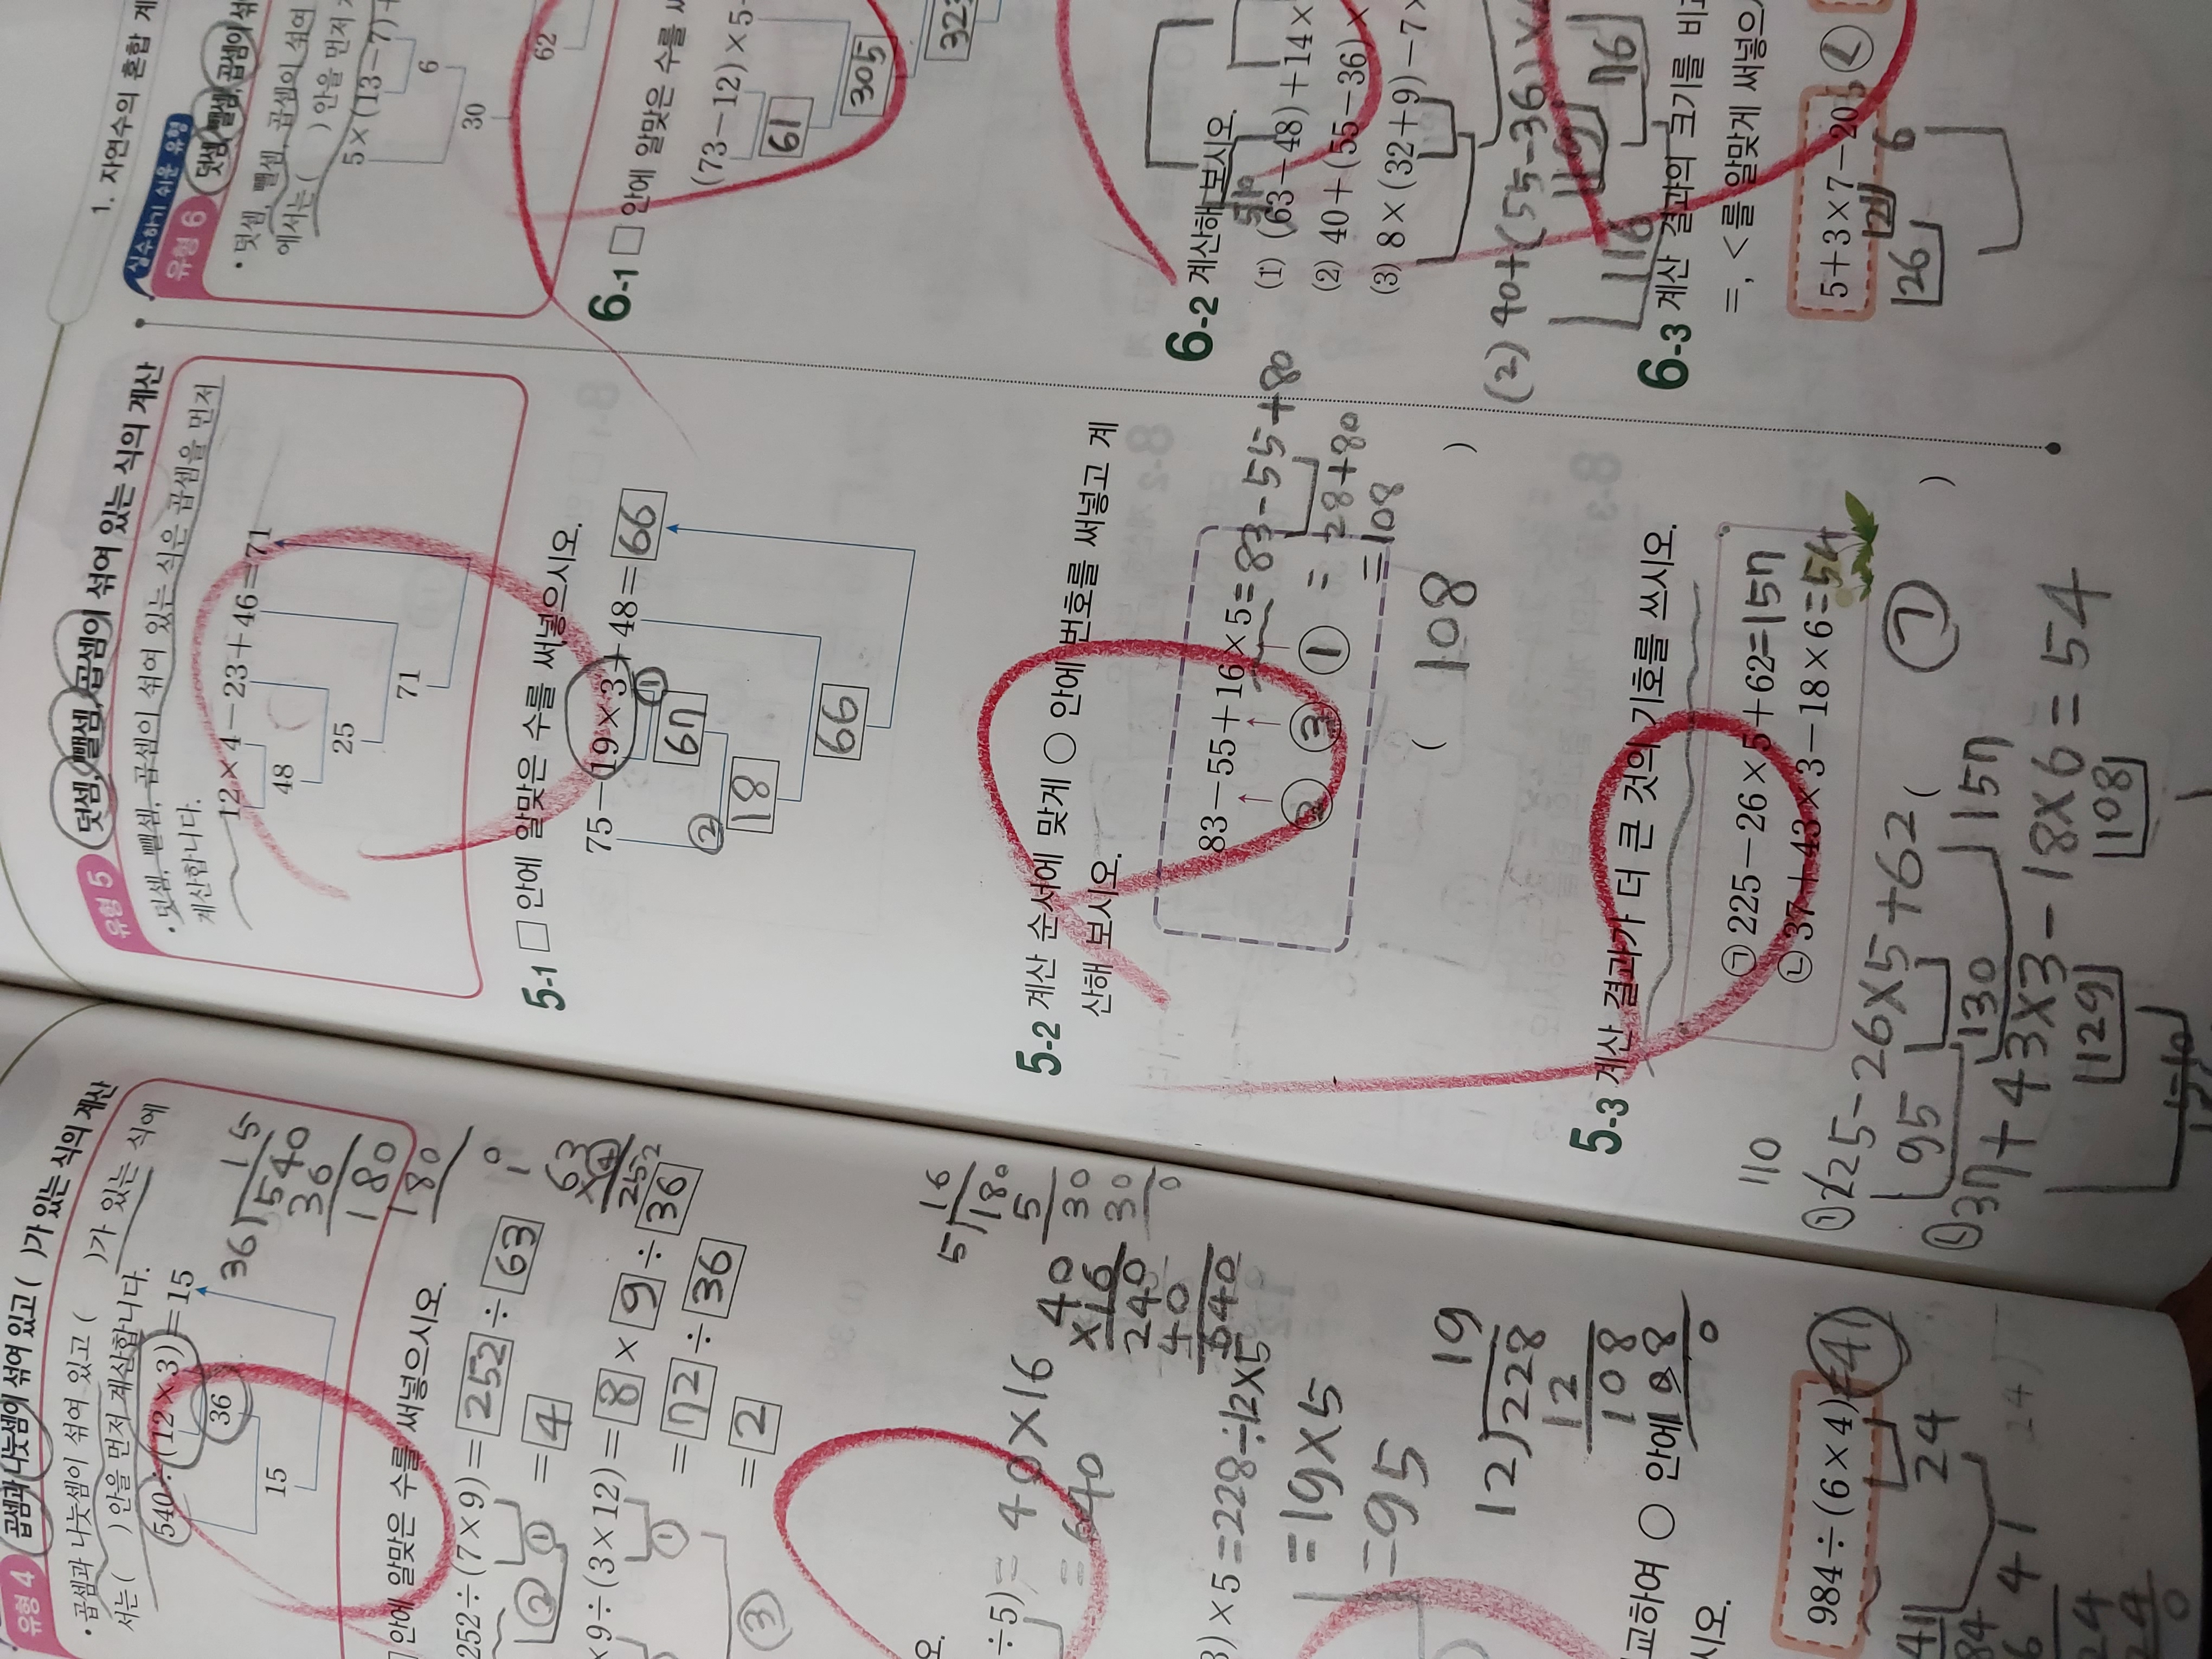 유형 4 곱셈과 나눗셈이 섞여 있고 ( )가 있는 식의 계산
• 곱셈과 나눗셈이 섞여 있고 ( )가 있는 식에
서는 ( ) 안을 먼저 계산합니다.
540÷(12×3)=15
36
15
36)540
15
36
180
180
안에 알맞은 수를 써넣으시오.
252÷(7×9)=252÷63
=4
① ②
63
×4
252
×9÷(3×12)=8×9÷36
=72÷36
=2
①
③
÷5)=40×16
=640
5)180
16
5
30
30
0
40
×16
240
40
640
)×5=228÷12×5
=19×5
=95
12)228
19
12
108
108
0
교하여 ○ 안에
시오.
984÷(6×4)
41
24
유형 5 덧셈, 뺄셈, 곱셈이 섞여 있는 식의 계산
• 덧셈, 뺄셈, 곱셈이 섞여 있는 식은 곱셈을 먼저
계산합니다.
12×4-23+46=71
48
25
71
5-1 □ 안에 알맞은 수를 써넣으시오.
75-19×3+48=66
①
67
②
18
66
5-2 계산 순서에 맞게 ○ 안에 번호를 써넣고 계
산해 보시오.
83-55+16×5=83-55+80
② ③ ①
=28+80
=108
( 108 )
5-3 계산 결과가 더 큰 것의 기호를 쓰시오.
㉠ 225-26×5+62=157
㉡ 37+43×3-18×6=54
( ㉠ )
110
㉠225-26×5+62
95
130
157
㉡37+43×3-18×6=54
129
108
1. 자연수의 혼합 계
실수하기 쉬운 유형
유형 6 덧셈, 뺄셈, 곱셈이 섞
• 덧셈, 뺄셈, 곱셈이 섞여
에서는 ( ) 안을 먼저
5×(13-7)+
6
30
62
6-1 □ 안에 알맞은 수를 써
(73-12)×5-
61
305
323
6-2 계산해 보시오.
(1) (63-48)+14×
(2) 40+(55-36)×
(3) 8×(32+9)-7×
(2) 40+(55-36)×
19
76
116
6-3 계산 결과의 크기를 비교
=, <를 알맞게 써넣으
5+3×7-20
<
21
26
6